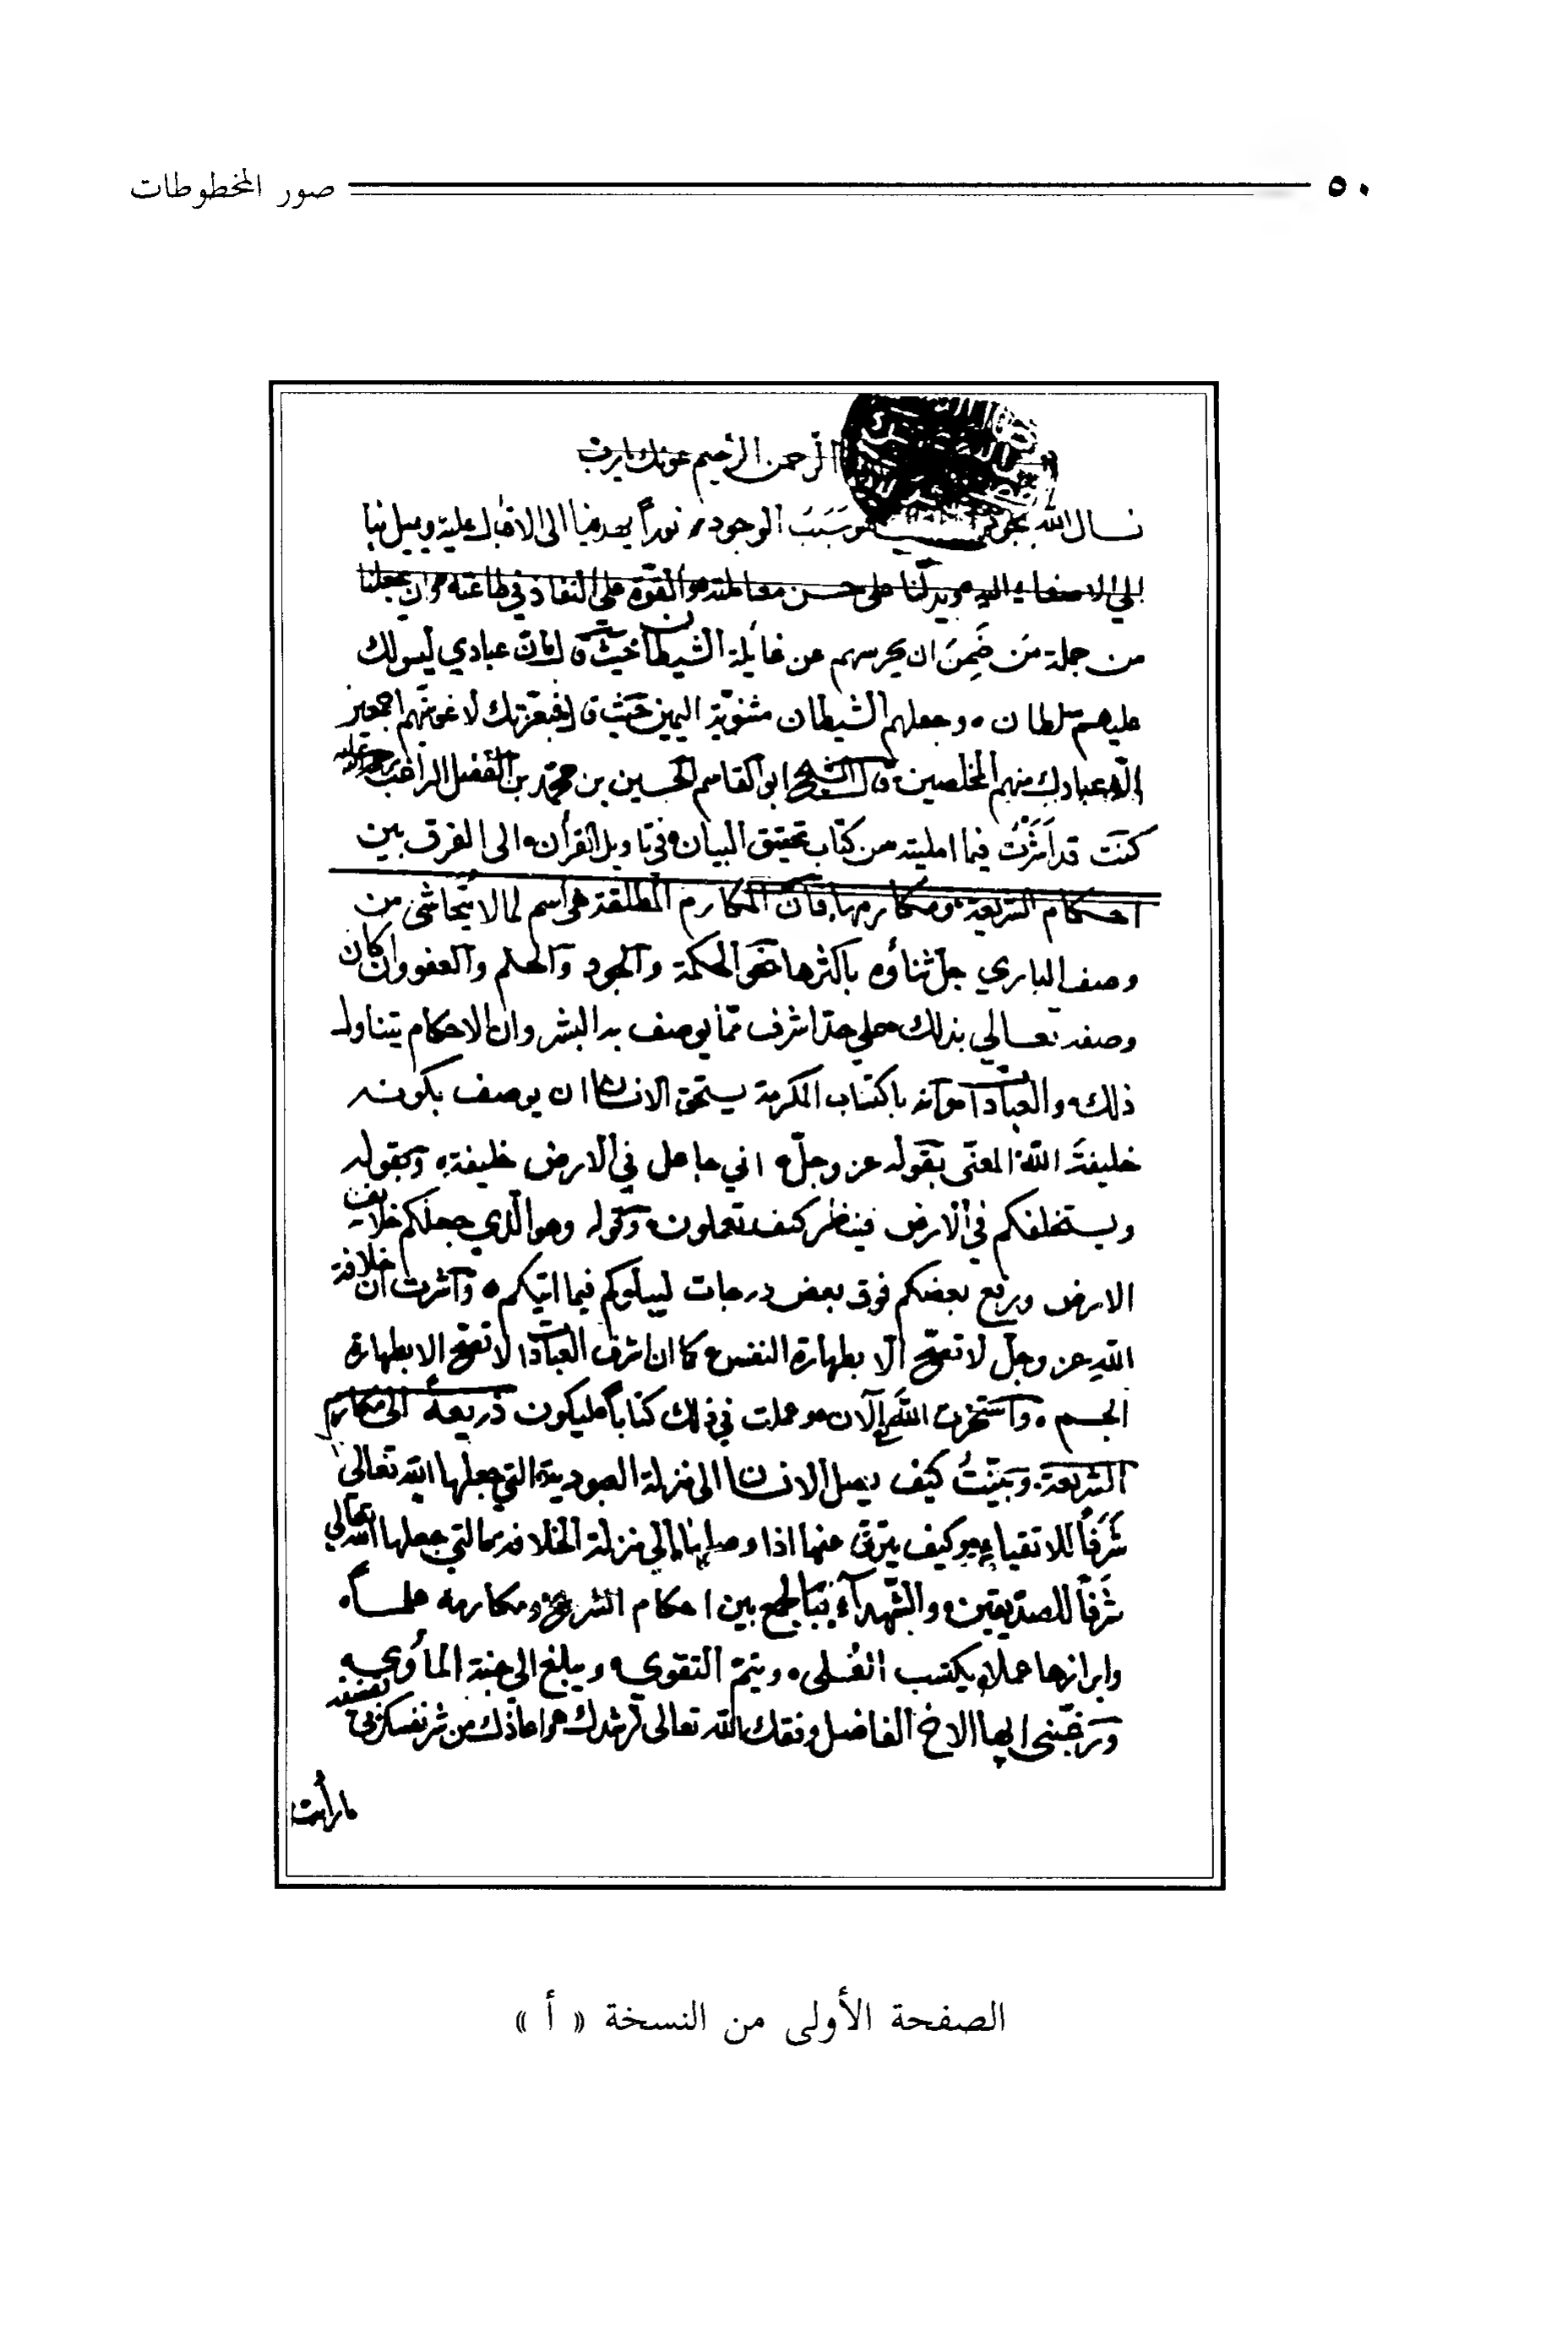 ٥٠ صور المخطوطات
الرحمن الرحيم عونك يا رب
نسال الله بجوده سبب الوجود نوراً يهدينا الى الاقبال عليه ويميل بنا
الى الاصغاء اليه ويدلنا على حسن معاملته والقوة على النفاذ في طاعته وان يجعلنا
من جملة من ضَمِنَ ان يحرسهم من غايلة الشيطان حيث قال ان عبادي ليس لك
عليهم سلطان وجعلهم الشيطان مثنوية اليمين حيث قال فبعزتك لاغوينهم اجمعين
الا عبادك منهم المخلصين قال الشيخ ابو القاسم الحسين بن محمد بن الفضل الراغب رحمة الله عليه
كنت قد اشرت فيما امليته من كتاب تحقيق البيان في تاويل القرأن الى الفرق بين
احكام الشريعة ومكارمها فان المكارم المطلقة هي اسم لما لا يتحاشى من
وصف الباري جل ثناؤه باكثرها نحو الحكمة والجود والحلم والعفو وان كان
وصفه تعالي بذلك علي حد اشرف مما يوصف به البشر وان الاحكام يتناول
ذلك والعبادات وانه باكتساب المكرمة يستحق الانسان ان يوصف بكونه
خليفةَ الله المعنى بقوله عز وجل اني جاعل في الارض خليفة وبقوله
ويستخلفكم في الارض فينظر كيف تعملون وقوله وهو الذي جعلكم خلايف
الارض ورفع بعضكم فوق بعض درجات ليبلوكم فيما اتيكم واشرت ان خلافة
الله عز وجل لا تصح الا بطهارة النفس كما ان اشرف العبادات لا تصح الا بطهارة
الجسم واستخرت الله الآن وعملت في ذلك كتاباً ليكون ذريعة الى مكارم
الشريعة وبينتُ كيف يصل الانسان الى منزلة العبودية التي جعلها الله تعالى
شَرَفاً للاتقياء وكيف يترقى عنها اذا وصلها الى منزلة الخلافة التي جعلها الله تعالي
شرفاً للصديقين والشهدآء فبالجمع بين احكام الشرع ومكارمه علماً
وابرازها عملا يكتسب العُلى ويتم التقوي ويبلغ الي جنة المأوي
ورغبني ايها الاخ الفاضل وفقك الله تعالى لرشدك واعاذك من شر نفسك في تصنيفه
ما رأيت
الصفحة الأولى من النسخة « أ »